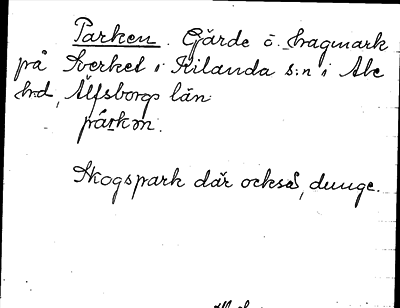 Parken. Gärde o. hagmark
på Sverket i Kilanda s:n i Ale
hd, Älfsborgs län
parkɜn.
Skogspark där också, dunge.